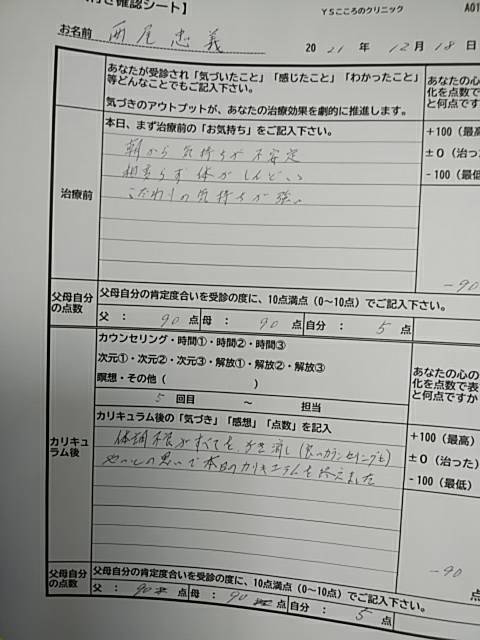 付き確認シート】
YSこころのクリニック
A01
お名前 西尾忠義
2021年12月18日
あなたが受診され「気づいたこと」「感じたこと」「わかったこと」
等どんなことでもご記入下さい。
気づきのアウトプットが、あなたの治療効果を劇的に推進します。
あなたの心の
化を点数で表
と何点ですか
治療前
本日、まず治療前の「お気持ち」をご記入下さい。
朝から気持ちが不安定
相変らず体がしんどい
こだわりの気持ちが強い
+100(最高
±0(治った
-100(最低
-90
父母自分
の点数
父母自分の肯定度合いを受診の度に、10点満点(0~10点)でご記入下さい。
父:90点 母:90点 自分:5点
カリキュ
ラム後
カウンセリング・時間①・時間②・時間③
次元①・次元②・次元③・解放①・解放②・解放③
瞑想・その他( )
5回目 ~ 担当
あなたの心の
化を点数で表
と何点ですか
カリキュラム後の「気づき」「感想」「点数」を記入
体調不良がすべてを打き消し(良いカウンセリングも)
やっとの思いで本日のカリキュラムを終えました
+100(最高)
±0(治った)
-100(最低)
-90
点
父母自分
の点数
父母自分の肯定度合いを受診の度に、10点満点(0~10点)でご記入下さい。
父:90点 母:90点 自分:5点